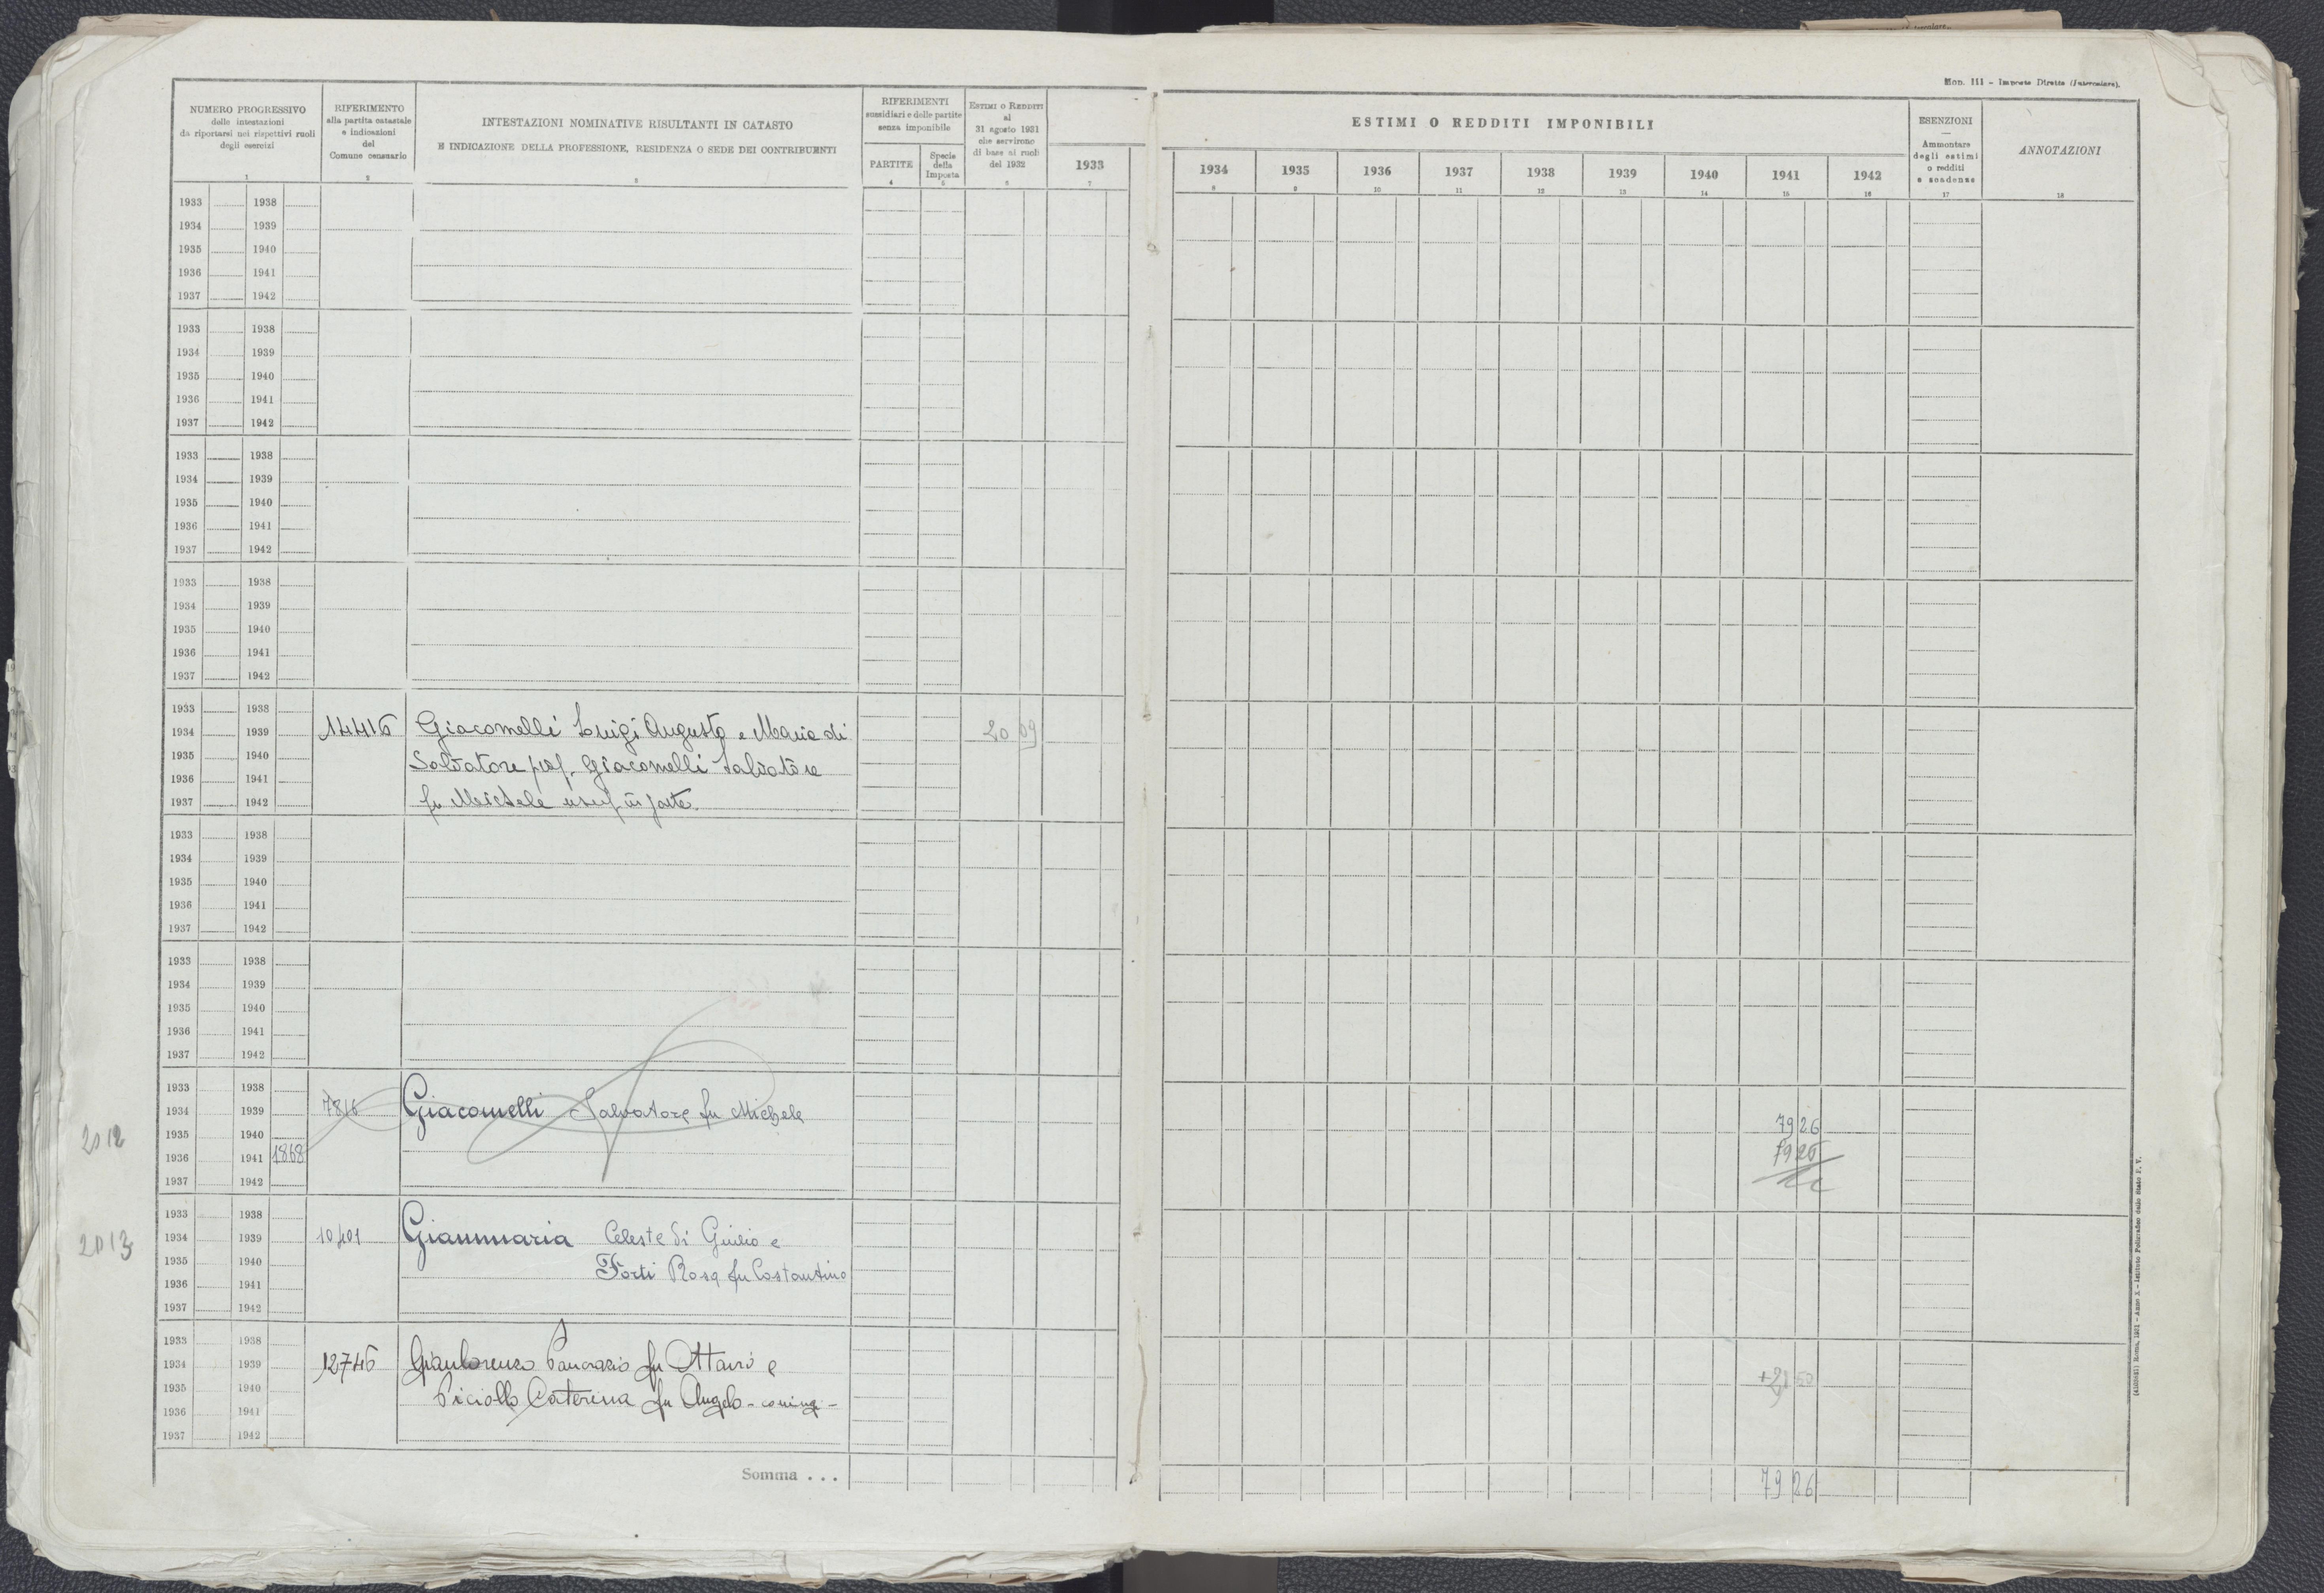 Mod. 111 - Imposte Dirette
NUMERO PROGRESSIVO
delle intestazioni
da riportarsi nei rispettivi ruoli
degli esercizi
1
RIFERIMENTO
alla partita catastale
e indicazioni
del
Comune censuario
2
INTESTAZIONI NOMINATIVE RISULTANTI IN CATASTO
E INDICAZIONE DELLA PROFESSIONE, RESIDENZA O SEDE DEI CONTRIBUENTI
3
RIFERIMENTI
sussidiari e delle partite
senza imponibile
PARTITE
4
Specie
della
Imposta
5
ESTIMI O REDDITI
al
31 agosto 1931
che servirono
di base ai ruoli
del 1932
6
1933
7
ESTIMI O REDDITI IMPONIBILI
1934 1935 1936 1937 1938 1939 1940 1941 1942
8 9 10 11 12 13 14 15 16
ESENZIONI
Ammontare
degli estimi
o redditi
e scadenze
17
ANNOTAZIONI
18
1933 1938
1934 1939
1935 1940
1936 1941
1937 1942
1933 1938
1934 1939
1935 1940
1936 1941
1937 1942
1933 1938
1934 1939
1935 1940
1936 1941
1937 1942
1933 1938
1934 1939
1935 1940
1936 1941
1937 1942
1933 1938
1934 1939 14416 Giacomelli Luigi Augusto e Maria di 20 09
1935 1940 Salvatore prop. Giacomelli Salvatore
1936 1941
1937 1942 fu Michele usuf in parte.
1933 1938
1934 1939
1935 1940
1936 1941
1937 1942
1933 1938
1934 1939
1935 1940
1936 1941
1937 1942
1933 1938
1934 1939 7816 Giacomelli Salvatore fu Michele 79 26
2012 1935 1940
1936 1941 1868 79 26
1937 1942
1933 1938
2013 1934 1939 10401 Gianmaria Celeste di Giulio e
1935 1940 Forti Rosa fu Costantino
1936 1941
1937 1942
1933 1938
1934 1939 12746 Gianlorenzo Pancrazio fu Mauro e
1935 1940 Piciollo Caterina fu Angelo - coniugi -
1936 1941
1937 1942
Somma . . . 79 26
Roma, 1931 - Anno X - Istituto Poligrafico dello Stato P. V.